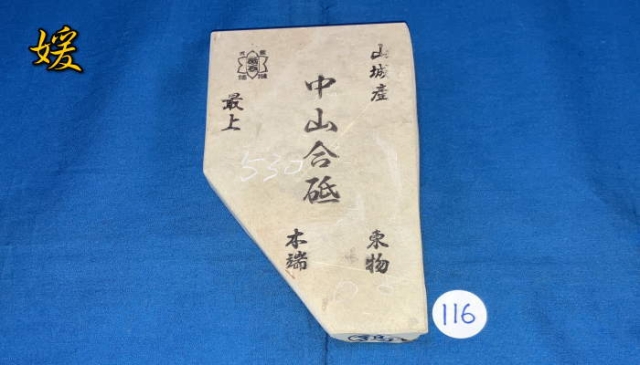 媛
山城産
中山合砥
最上
530
東物
本端
116